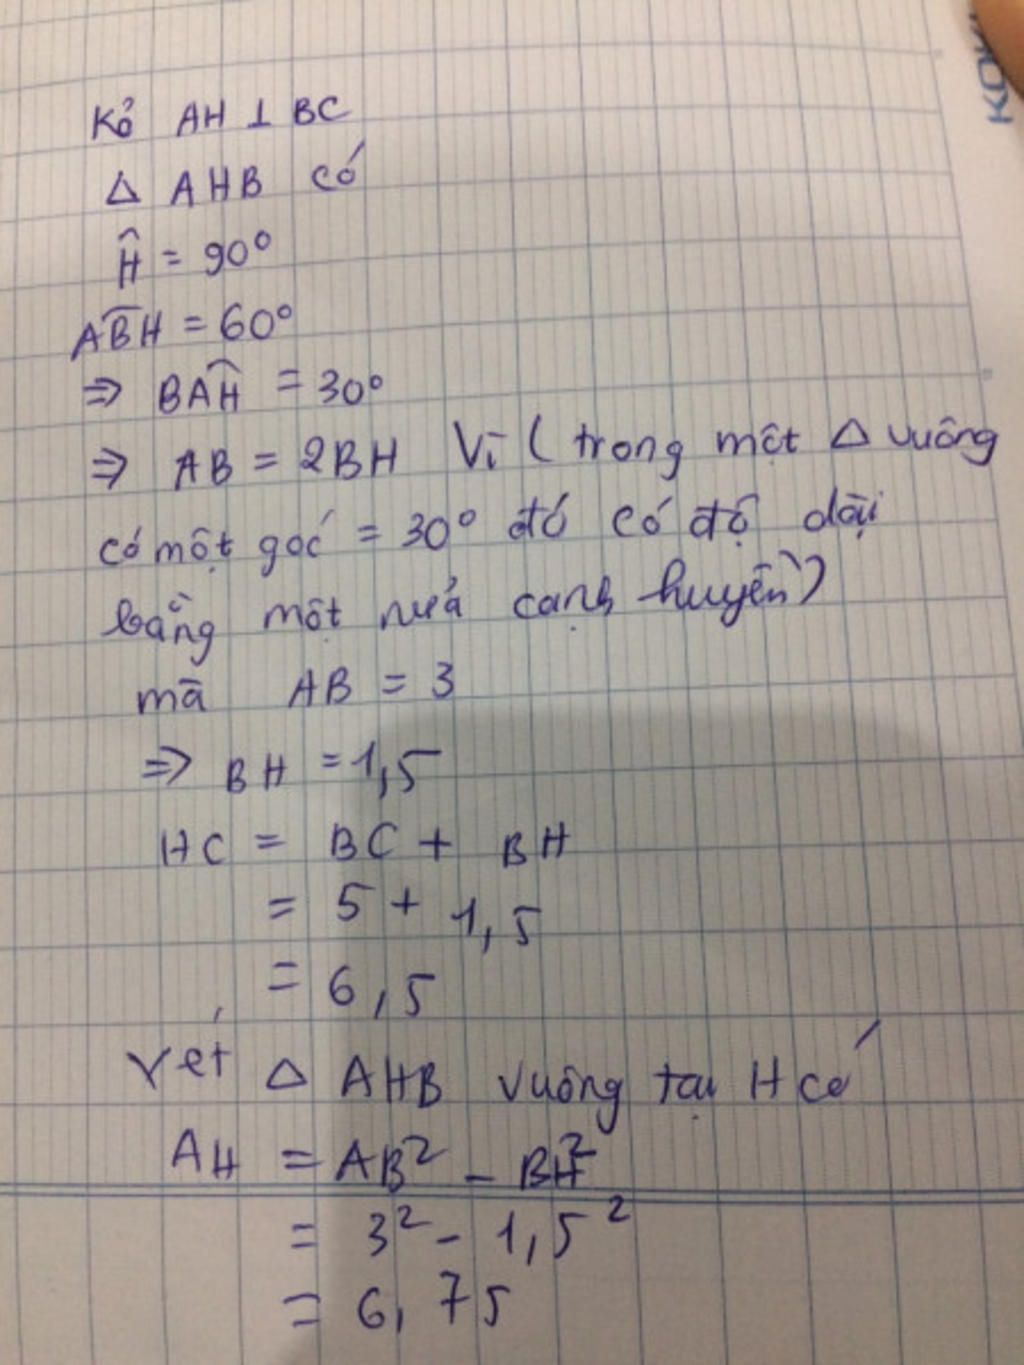 Kẻ AH ⊥ BC
Δ AHB có
Ĥ = 90°
AB̂H = 60°
⇒ BÂH = 30°
⇒ AB = 2BH Vì ( trong một Δ vuông
có một góc = 30° đó có độ dài
bằng một nửa cạnh huyền)
mà AB = 3
⇒ BH = 1,5
HC = BC + BH
= 5 + 1,5
= 6,5
Xét Δ AHB vuông tại H có
AH = AB² - BH²
= 3² - 1,5²
= 6,75